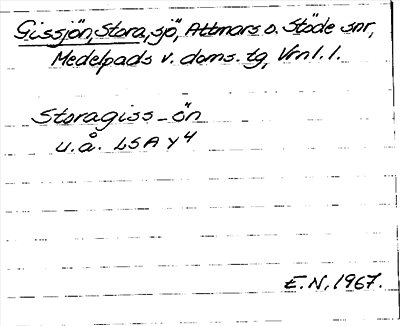 Gissjön, Stora, sjö, Attmars o. Stöde snr,
Medelpads v. doms. tg, Vrnl. l.
Storagiss-ön
u.å. LSA Y4
E.N. 1967.